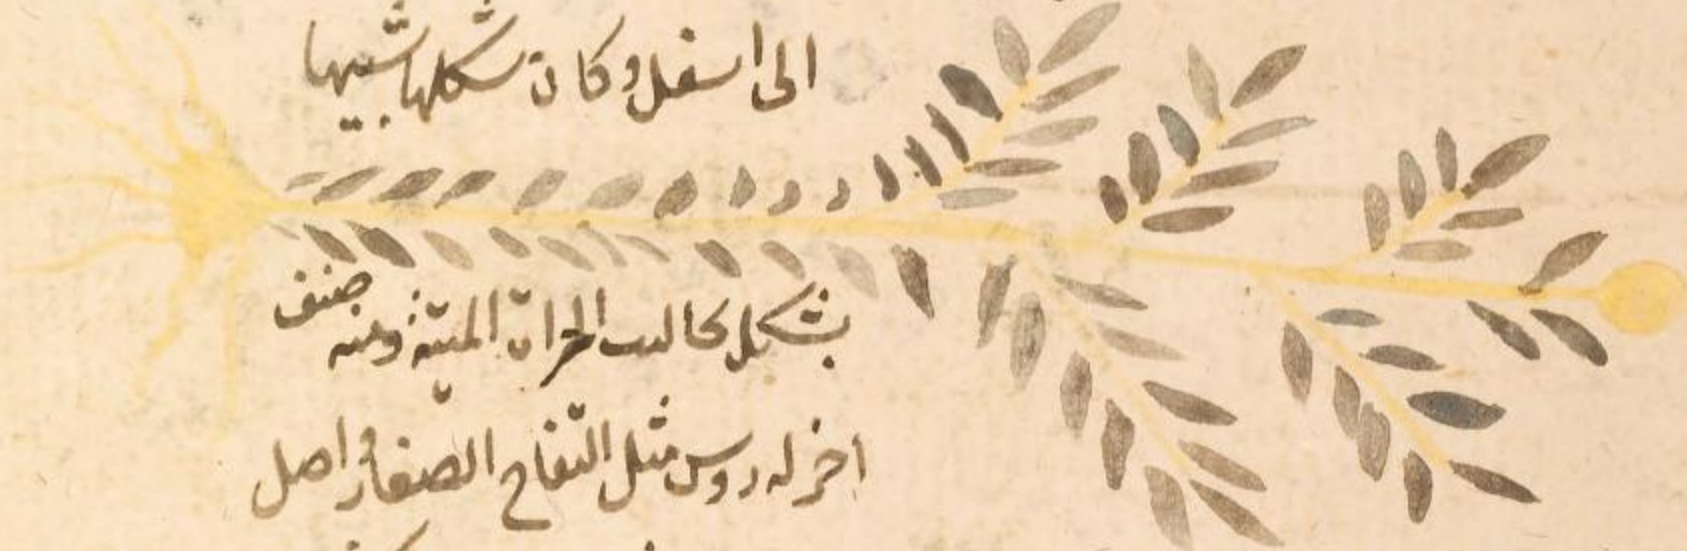 الى اسفل وكان شكلها شبيها
بشكل مخاليب الحداة الميتة ومنه صنف
اخر له روس مثل التفاح الصغار واصل